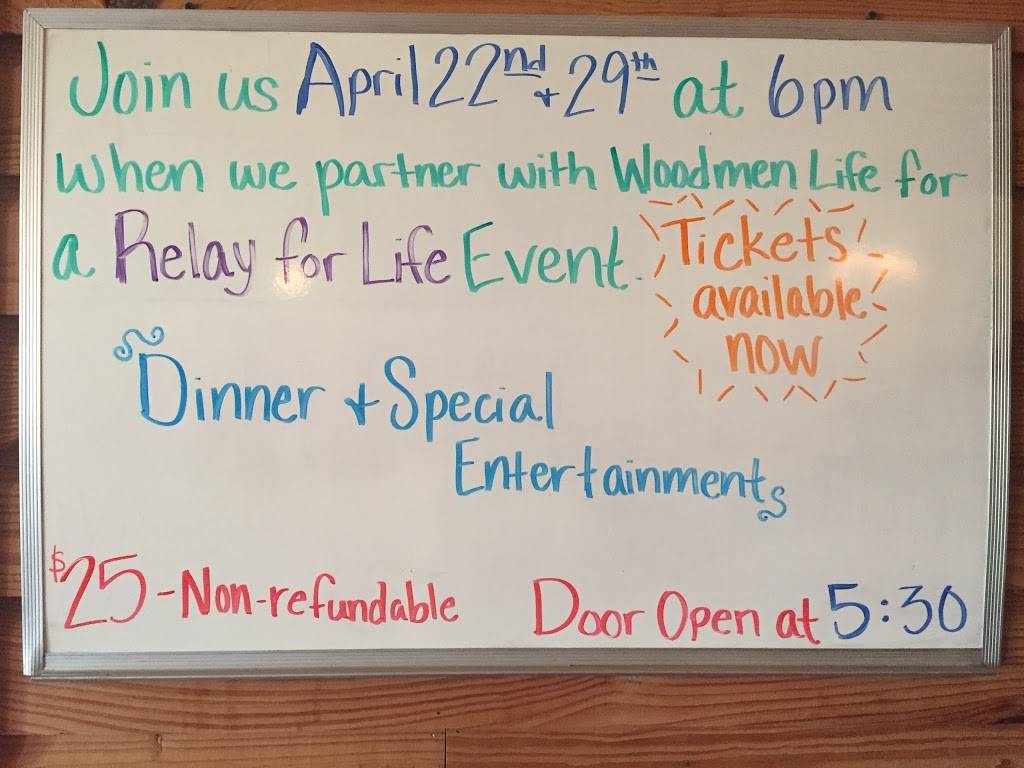 Join us April 22nd + 29th at 6pm
when we partner with Woodmen Life for
a Relay for Life Event.
Tickets
available
now
Dinner + Special
Entertainment
$25 - Non-refundable
Door Open at 5:30